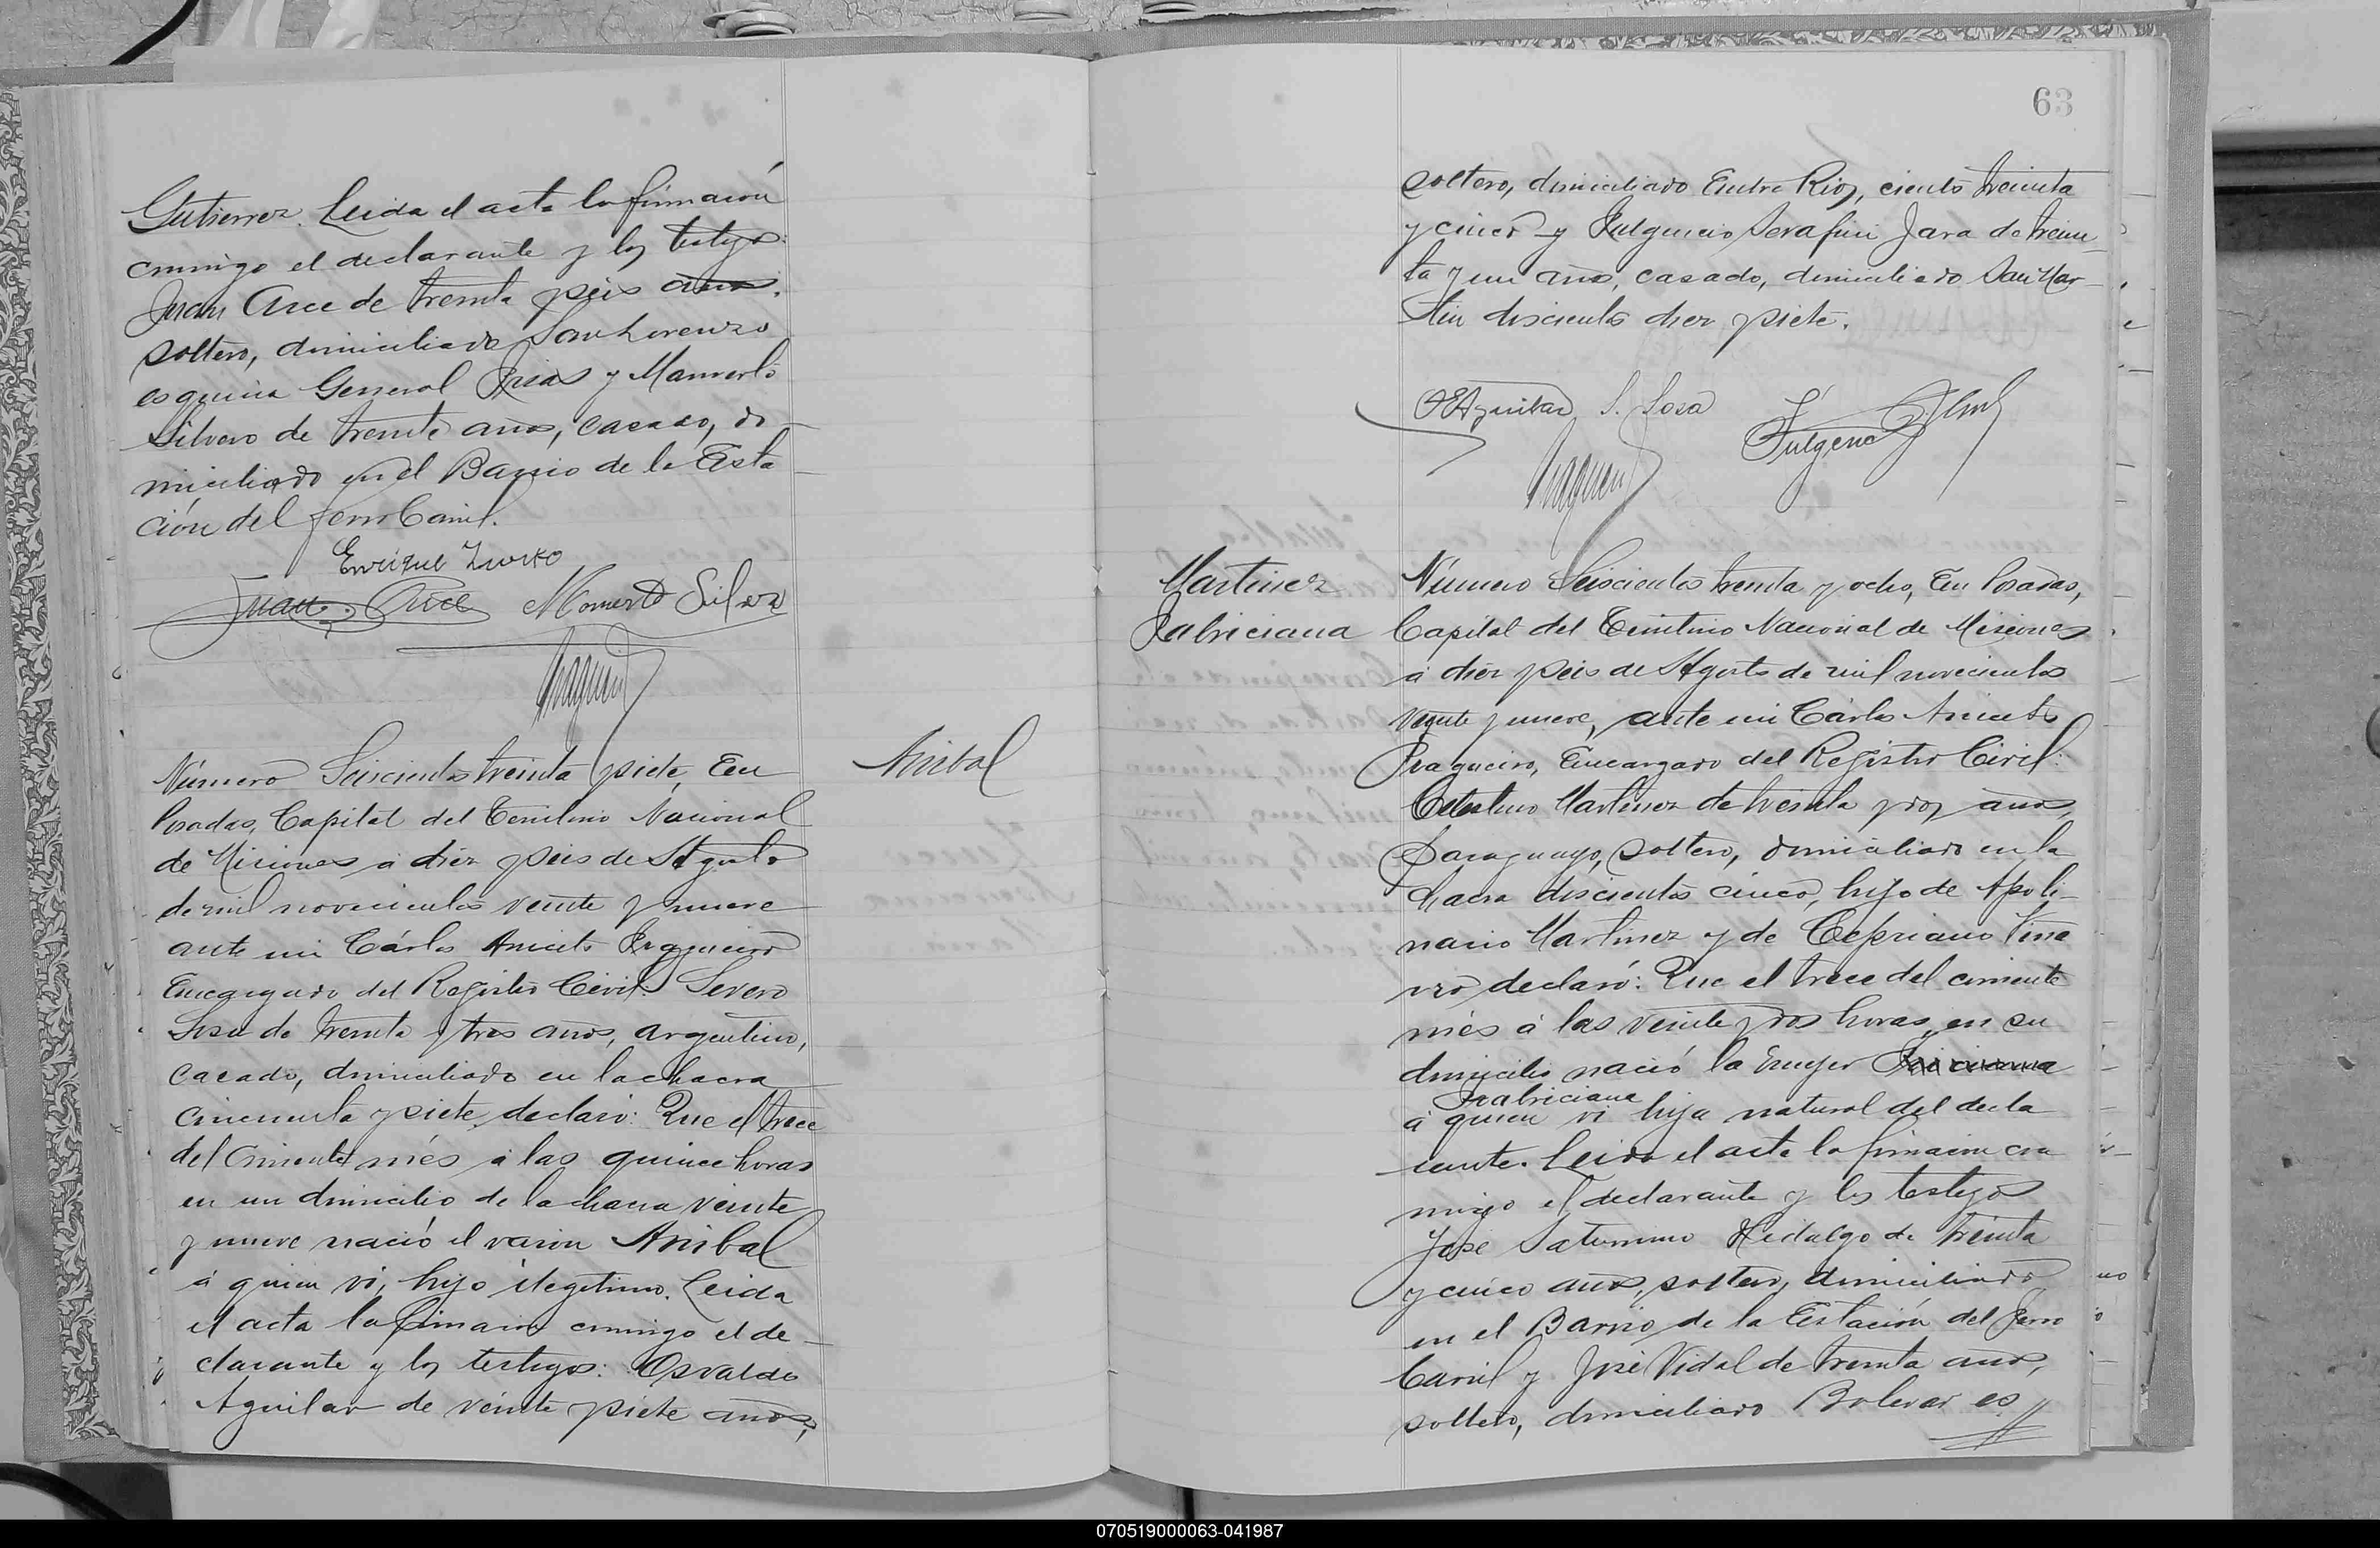 Gutierrez. Leida el acta la firmaron
conmigo el declarante y los testigos:
Juan Arce de treinta y seis años,
soltero, domiciliado San Lorenzo
esquina General Frias y Mamerto
Silvero de treinta años, casado, do
miciliado en el Barrio de la Esta
ción del Ferro Carril.
Enrique
Juan Arce Momerto Silvero
Número Seiscientos treinta y siete, En
Posadas, Capital del Territorio Nacional
de Misiones á diez y seis de Agosto
de mil novecientos veinte y nueve
ante mi Cárlos Aniceto Fragueiro
Encargado del Registro Civil: Severo
Sosa de treinta y tres años, argentino,
casado, domiciliado en la chacra
cincuenta y siete, declaró: Que el trece
del corriente més á las quince horas
en un domicilio de la chacra veinte
y nueve nació el varon Anibal
á quien vi, hijo ilegitimo. Leida
el acta la firmaron conmigo el de-
clarante y los testigos: Osvaldo
Aguilar de veinte y siete años,
Anibal
63
soltero, domiciliado Entre Rios, ciento treinta
y cinco y Fulgencio Serafin Jara de trein-
ta y un años, casado, domiciliado San Mar-
tin doscientos diez y siete.
OEAguilar S. Sosa Fulgencio
Martinez
Fabriciana
Número Seiscientos treinta y ocho, En Posadas,
Capital del Territorio Nacional de Misiones
á diez y seis de Agosto de mil novecientos
veinte y nueve, ante mi Cárlos Aniceto
Fragueiro, Encargado del Registro Civil:
Celestino Martinez de treinta y dos años,
Paraguayo, soltero, domiciliado en la
chacra doscientos cinco, hijo de Apoli-
nario Martinez y de Cepriano
declaró: Que el trece del corriente
més á las veinte y dos horas en su
domicilio nació la mujer
Fabriciana
á quien vi hija natural del decla
rante. Leida el acta la firmaron con
migo el declarante y los testigos
José Saturnino Hidalgo de treinta
y cinco años, soltero, domiciliado
en el Barrio de la Estación del Ferro
Carril y José Vidal de treinta años,
soltero, domiciliado Bolivar es
070519000063-041987